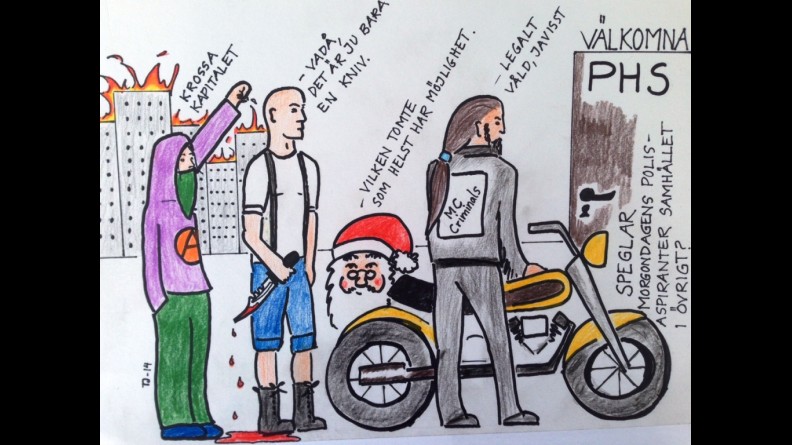 KROSSA
KAPITALET
- VADÅ,
DET ÄR JU BARA
EN KNIV.
- VILKEN TOMTE
SOM HELST HAR MÖJLIGHET.
- LEGALT
VÅLD, JAVISST
MC
Criminals
VÄLKOMNA
PHS
SPEGLAR
MORGONDAGENS POLIS-
ASPIRANTER SAMHÄLLET
I ÖVRIGT?